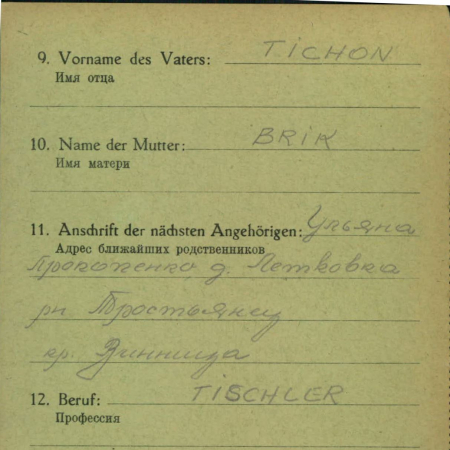 9. Vorname des Vaters: TICHON
Имя отца
10. Name der Mutter: BRIK
Имя матери
11. Anschrift der nächsten Angehörigen: Ульяна
Адрес ближайших родственников
Прокопенко д. Летковка
рн Тростьянец
кр. Винница
12. Beruf: TISCHLER
Профессия